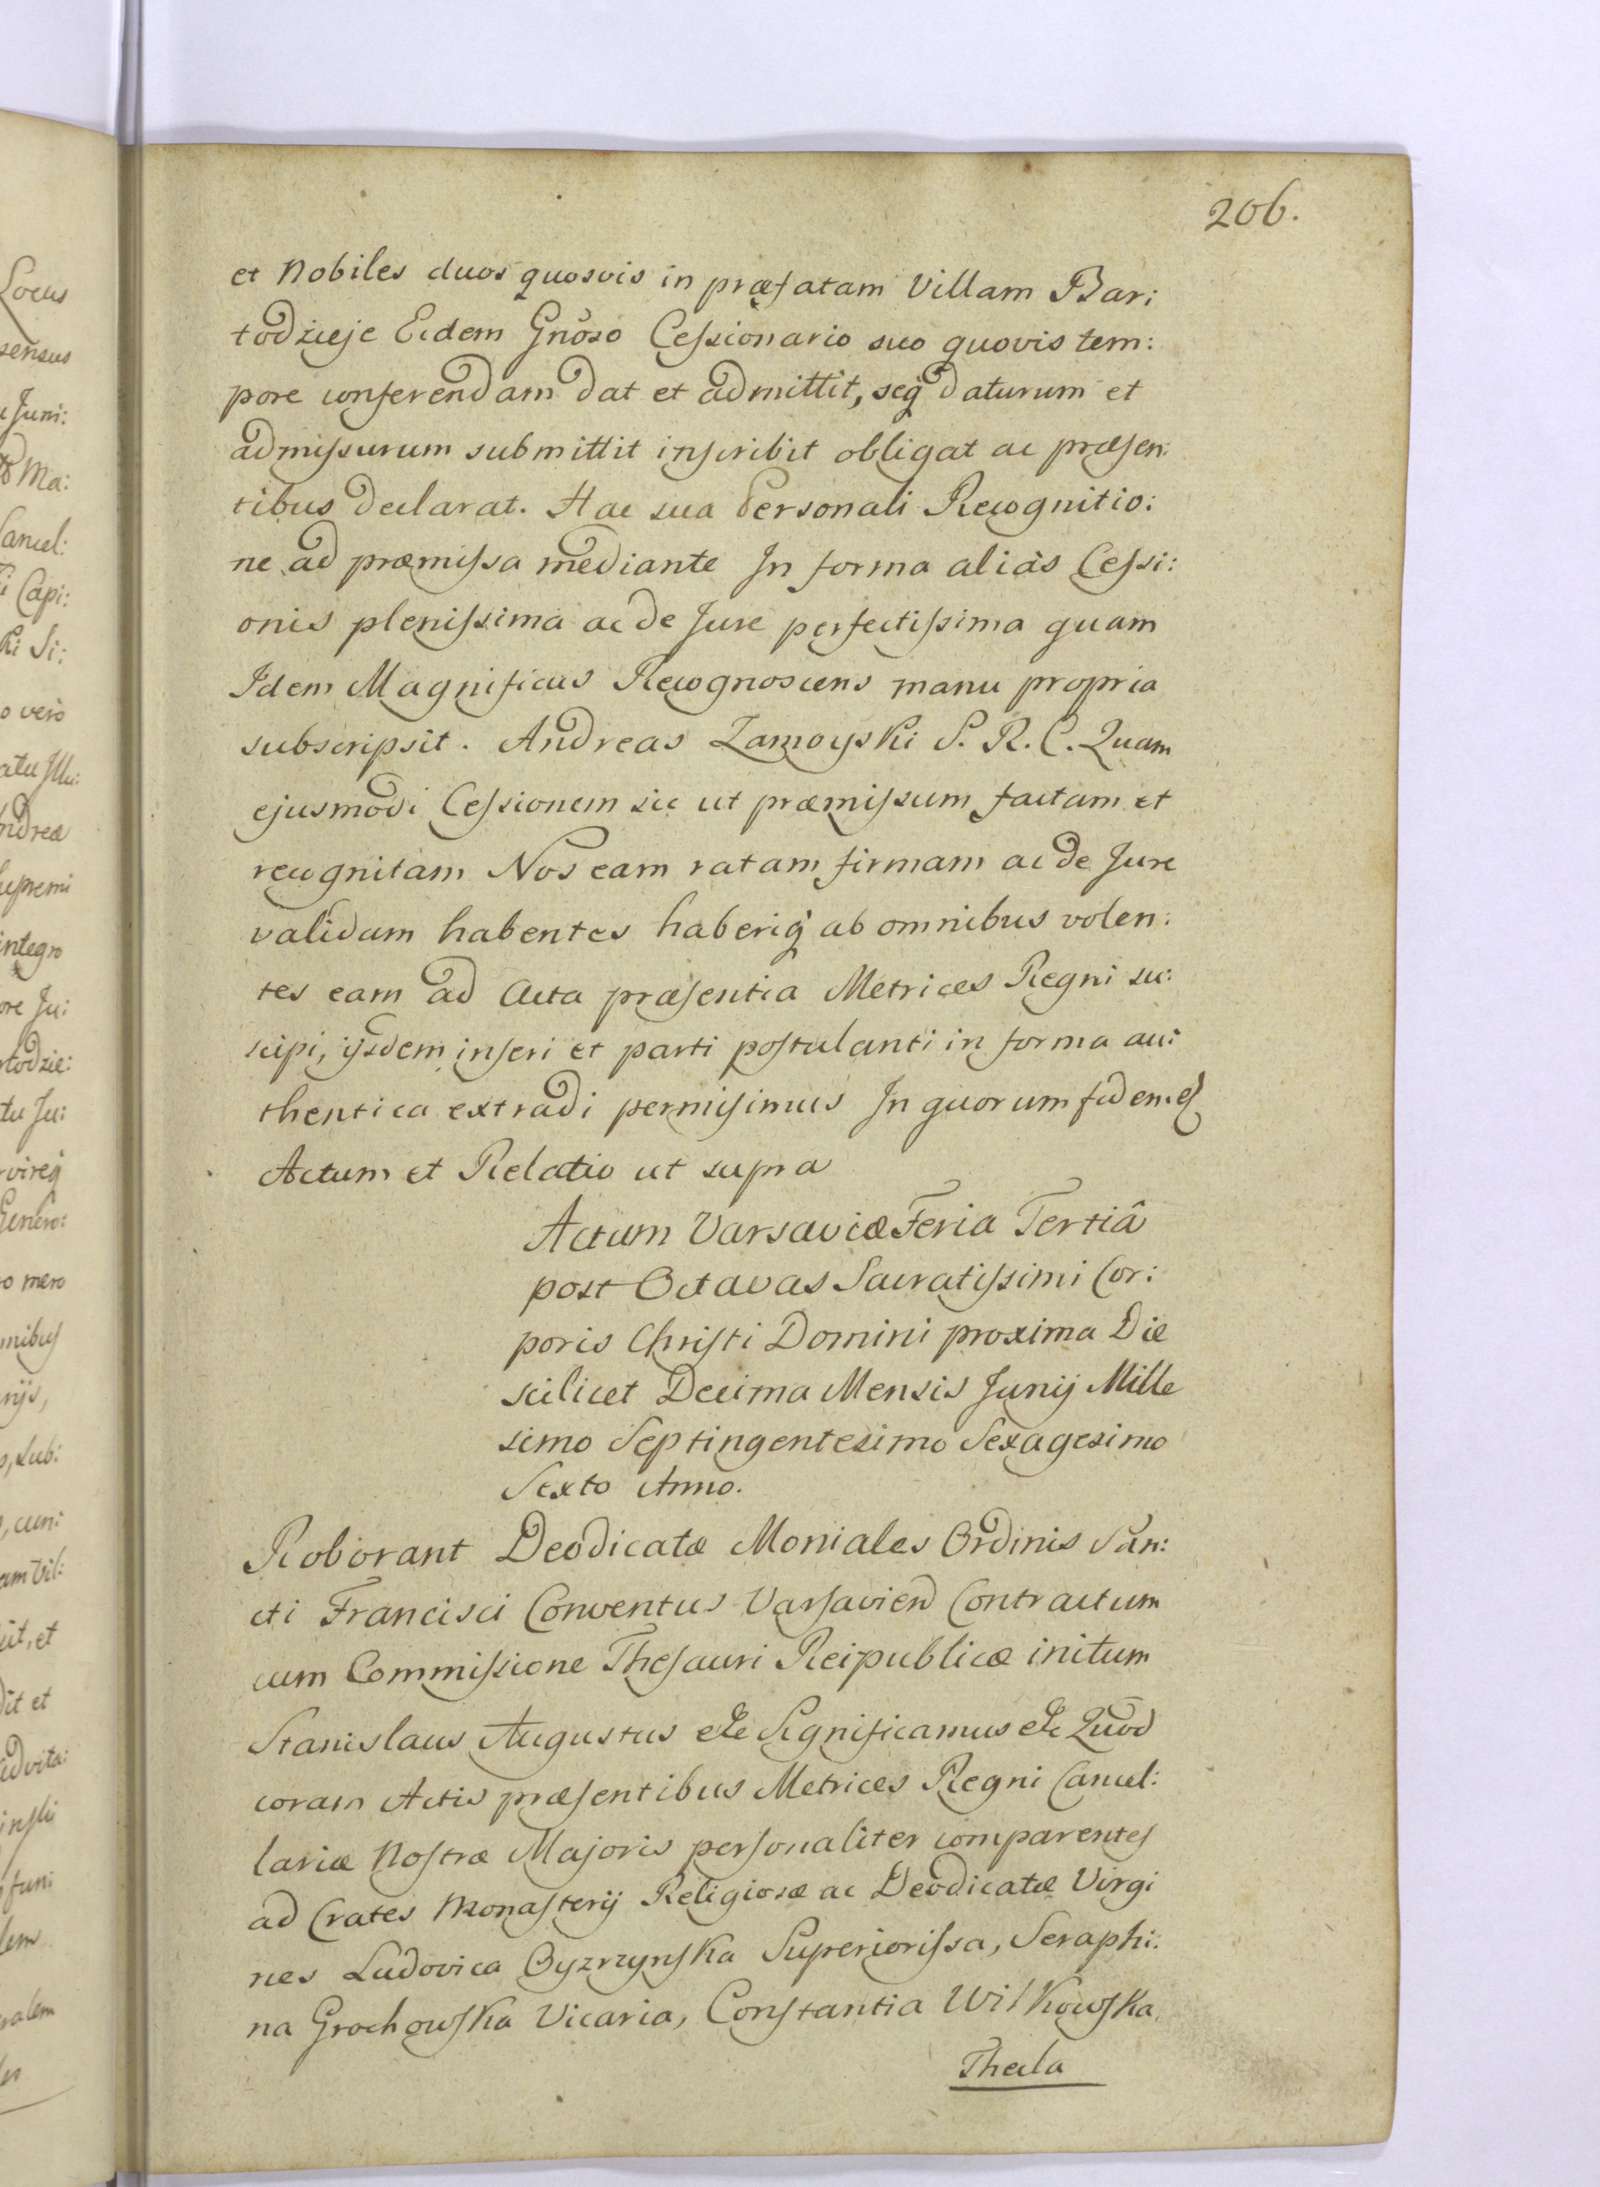 206.
et Nobiles duos quosvis in præfatam Villam Bar:
todzieje Eidem Gnõso Cessionario suo quovis tem:
pore conferendam dat et admittit, seq́ daturum et
admissurum submittit inscribit obligat ac præsen:
tibus declarat. Hac sua Personali Recognitio:
ne ad præmissa mediante In forma aliàs Cessi:
onis plenissima ac de Jure perfectissima quam
Idem Magnificus Recognoscens manu propria
subscripsit. Andreas Zamoyski S. R. C. Quam
ejusmodi Cessionem sic ut præmissum factam et
recognitam Nos eam ratam firmam ac de Jure
validam habentes haberiq́ ab omnibus volen:
tes eam ad Acta præsentia Metrices Regni su:
scipi, ijsdem inseri et parti postulanti in forma au:
thentica extradi permisimus In quorum fidem.
Actum et Relatio ut supra
Actum Varsaviæ Feria Tertiâ
post Octavas Sacratissimi Cor:
poris Christi Domini proxima Die
scilicet Decima Mensis Junij Mille
simo Septingentesimo Sexagesimo
Sexto Anno.
Roborant Deodicatæ Moniales Ordinis San:
cti Francisci Conventus Varsavien Contractum
cum Commissione Thesauri Reipublicæ initum
Stanislaus Augustus etc Significamus etc Quod
coram Actis præsentibus Metrices Regni Cancel:
lariæ Nostræ Majoris personaliter comparentes
ad Crates Monasterij Religiosæ ac Deodicatæ Virgi
nes Ludovica Superiorissa, Seraphi:
na Grochowska Vicaria, Constantia Witkowska
Thecla
Locus
sensus
Juni:
Ma:
Cancel:
Capi:
Si:
o verò
atu Illu:
ndreæ
upremi
integro
ore Ju:
rtodzie:
tu Ju:
vireq́
Genero:
o mero
mnibus
nijs,
sub:
, cum:
am Vil:
it, et
dit et